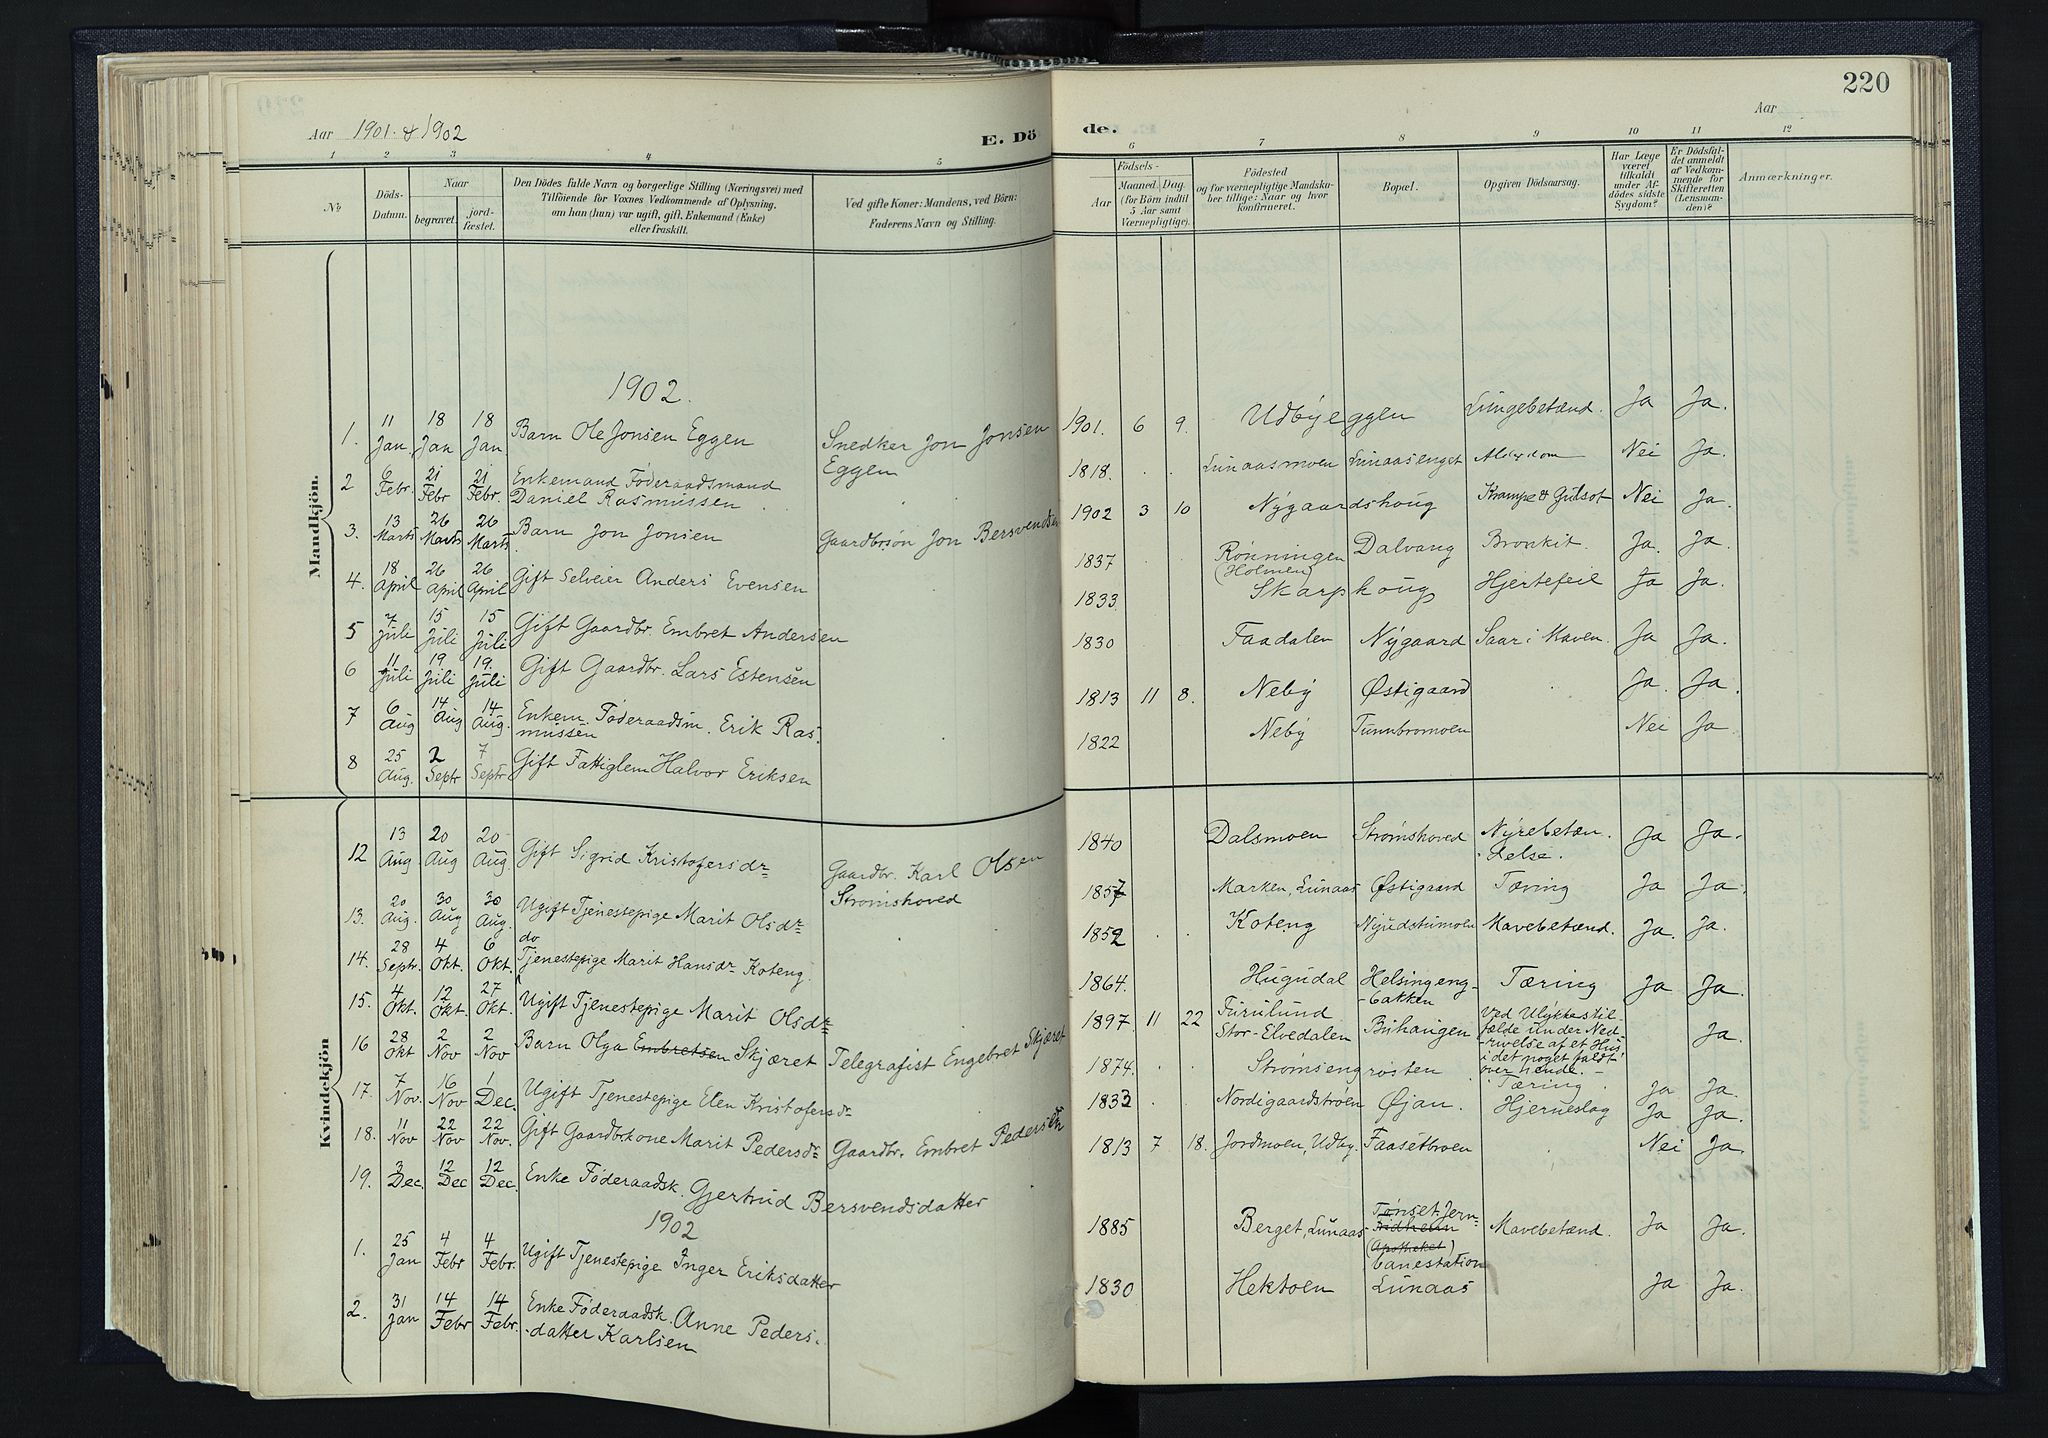 220
Aar 1901. & 1902
E. Dö
de.
Aar
1 2 3 4 5
6 7 8 9 10 11 12
No
Döds-Datum.
Naar
begravet.
jord-fæstet.
Den Dödes fulde Navn og borgerlige Stilling (Næringsvei) med
Tilföiende for Voxnes Vedkommende af Oplysning,
om han (hun) var ugift, gift, Enkemand (Enke)
eller fraskilt.
Ved gifte Koner: Mandens, ved Börn:
Faderens Navn og Stilling.
Födsels-
Aar
Maaned. Dag.
(for Börn indtil
5 Aar samt
Værnepligtige).
Födested
og for værnepligtige Mandska-
ber tillige: Naar og hvor
konfirmeret.
Bopæl.
Opgiven Dödsaarsag.
Har Læge
været
tilkaldt
under Af-
dödes sidste
Sygdom?
Er Dödsfal-
det anmeldt
af Vedkom-
mende for
Skifteretten
(Lensman-
den)?
Anmærkninger.
Mandkjön.
1902.
1. 11 Jan. 18 Jan 18 Jan. Barn Ole Jonsen Eggen Snedker Jon Jonsen
Eggen
1901. 6 9. Udbyeggen Lungebetænd. Ja Ja.
2 6 Febr. 21 Febr 21 Febr. Enkemand Föderaadsmand
Daniel Rasmussen
1818. Lunaasmoen Lunaasenget Alderdom Nei Ja.
3. 13 Marts 26 Marts 26 Marts Barn Jon Jonsen Gaardbrsön Jon Bersvendsen
1902 3 10 Nygaardshoug Krampe & Gulsot Nei Ja.
4. 18 April 26 April 26 April Gift Selveier Anders Evensen
1837 Rönningen
(Holmen) Dalvang Bronkit. Ja. Ja.
5 7 Juli 15 Juli 15 Juli Gift Gaardbr. Embret Andersen
1833. Skarphoug Hjertefeil Ja Ja.
6 11 Juli 19 Juli 19. Juli Gift Gaardbr. Lars Estensen
1830 Faadalen Nygaard Saar i Maven. Ja Ja.
7 6 Aug 14 Aug 14 Aug. Enkem. Föderaadsm. Erik Ras-
mussen
1813 11 8. Neby Østigaard Ja. Ja.
8 25 Aug. 2 Septr 7 Septr Gift Fattiglem Halvor Eriksen
1822 Neby Tunnbromoen Nei Ja.
Kvindekjön
12 13 Aug 20 Aug 20 Aug. Gift Sigrid Kristofersdr Gaardbr. Karl Olsen
Strömshoved
1840 Dalsmoen Strömshoved Nyrebetæn-
delse. Ja Ja.
13. 20 Aug. 30 Aug 30 Aug. Ugift Tjenestepige Marit Olsdr
1857 Marken, Lunaas Østigaard Tæring Ja Ja.
14. 28 Septr. 4 Okt. 6 Okt. do
Tjenestepige Marit Hansdr Koteng
1852 Koteng Nyudstumoen Mavebetænd. Ja. Ja.
15. 4 Okt. 12 Okt. 27 Okt. Ugift Tjenestepige Marit Olsdr
1864. Hugudal Helsingeng-
bakken Tæring Ja Ja.
16 28 Okt 2 Nov 2 Nov Barn Olga Embretsen Skjæret Telegrafist Engebret Skjæret
1897 11 22 Furulund
Stor-Elvedalen Buhaugen Ved Ulykkestil-
fælde under Ned-
rivelse af et Hus
i det noget faldt
over hende. Ja.
17. 7 Nov. 16 Nov 1 Dec. Ugift Tjenestepige Elen Kristofersdr
1874. Strömsengrösten Tæring. Ja Ja.
18. 11 Nov 22 Nov 22 Nov. Gift Gaardbrkone Marit Pedersdr Gaardbr. Embret Pedersen
1833 Nordigaardströen Øjan. Hjerneslag Ja Ja.
19. 3 Dec. 12 Dec 12 Dec. Enke Föderaadsk. Gjertrud Bersvendsdatter
1813 7 18. Jordmoen, Udby. Faasetbroen Nei Ja.
1902
1. 25 Jan 4 Febr 4 Febr. Ugift Tjenestepige Inger Eriksdatter
1885 Berget, Lunaas Tönset Jern-
(Apotheket)
banestation Mavebetænd. Ja Ja.
2. 31 Jan 14 Febr 14 Febr. Enke Föderaadsk. Anne Peders-
datter Karlsen
1830 Hektoen Lunaas Ja Ja.